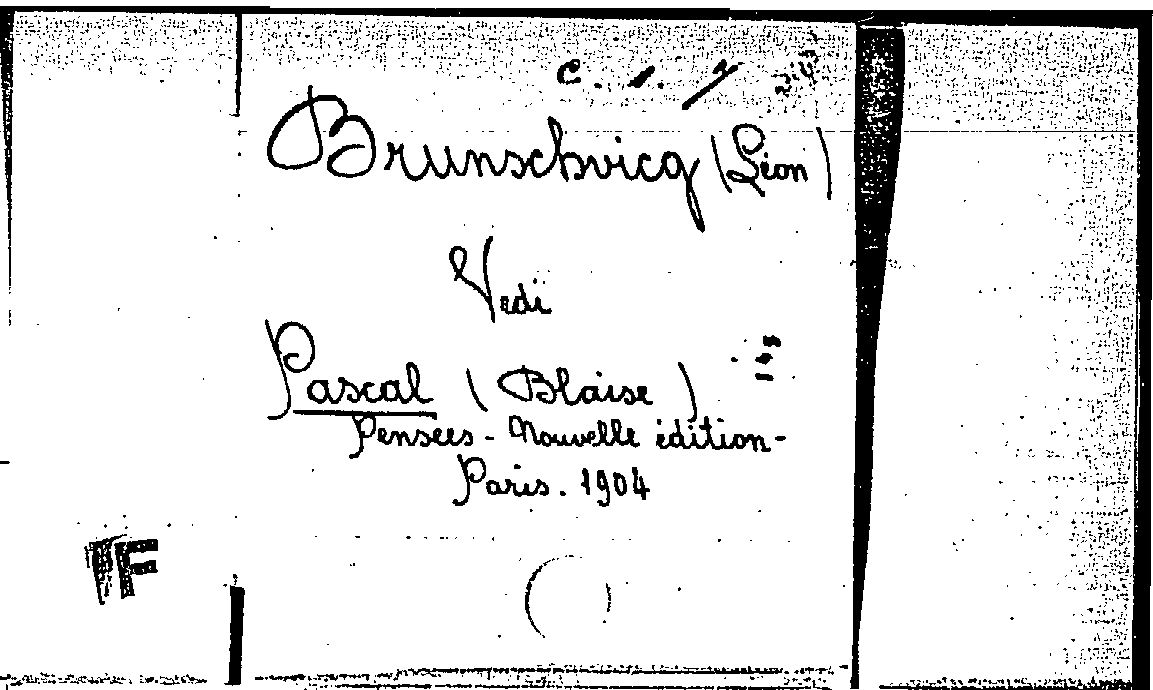 Brunschvicg (Léon)
Vedi
Pascal (Blaise)
Pensées - Nouvelle édition -
Paris. 1904